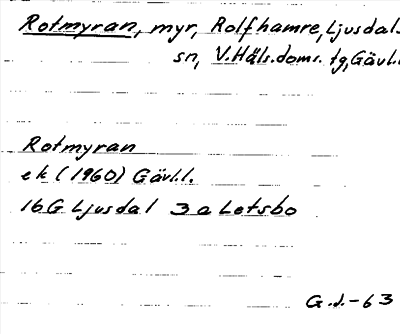 Rotmyran, myr, Rolfhamre, Ljusdals
sn, V. Häls. doms. tg, Gävl.l.
Rotmyran
ek (1960) Gävl.l.
16G Ljusdal 3a Letsbo
G.d.-63